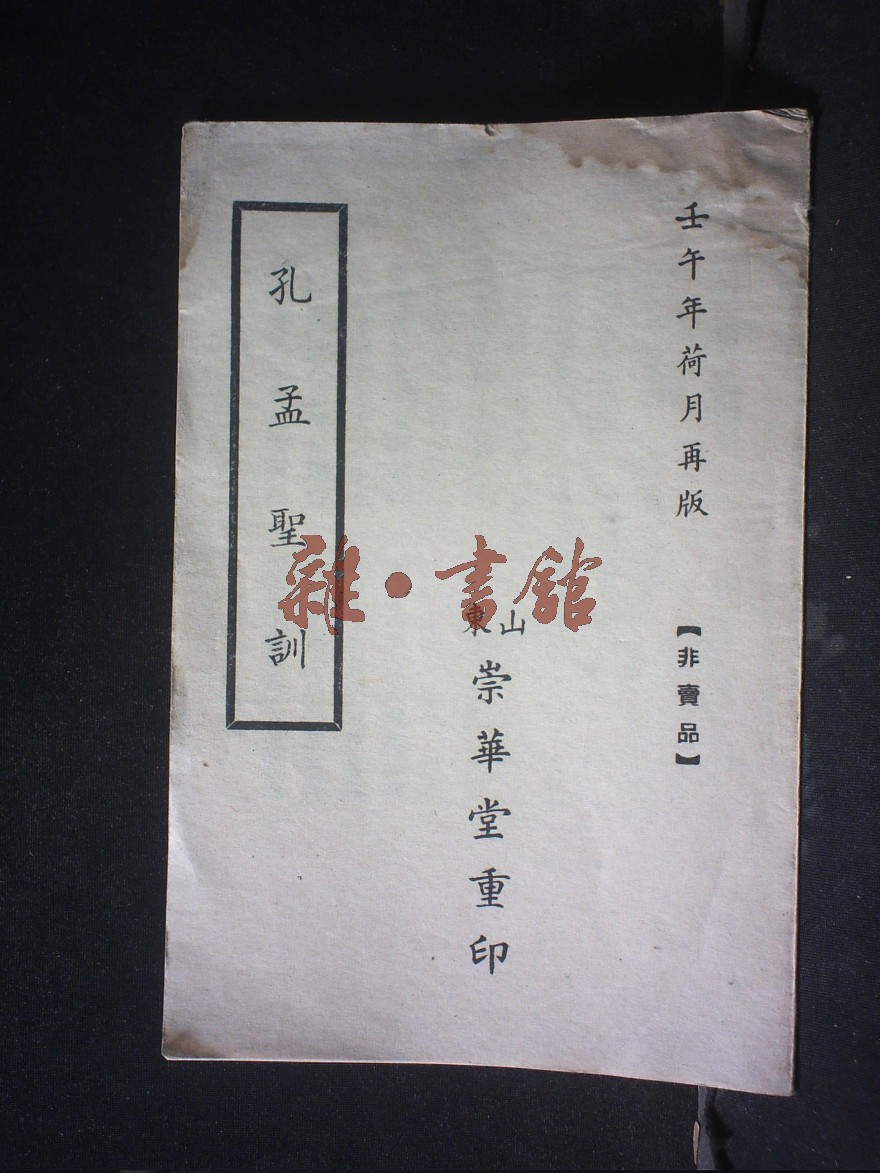 壬午年荷月再版
【非賣品】
山東
崇華堂重印
孔孟聖訓
雜·書館